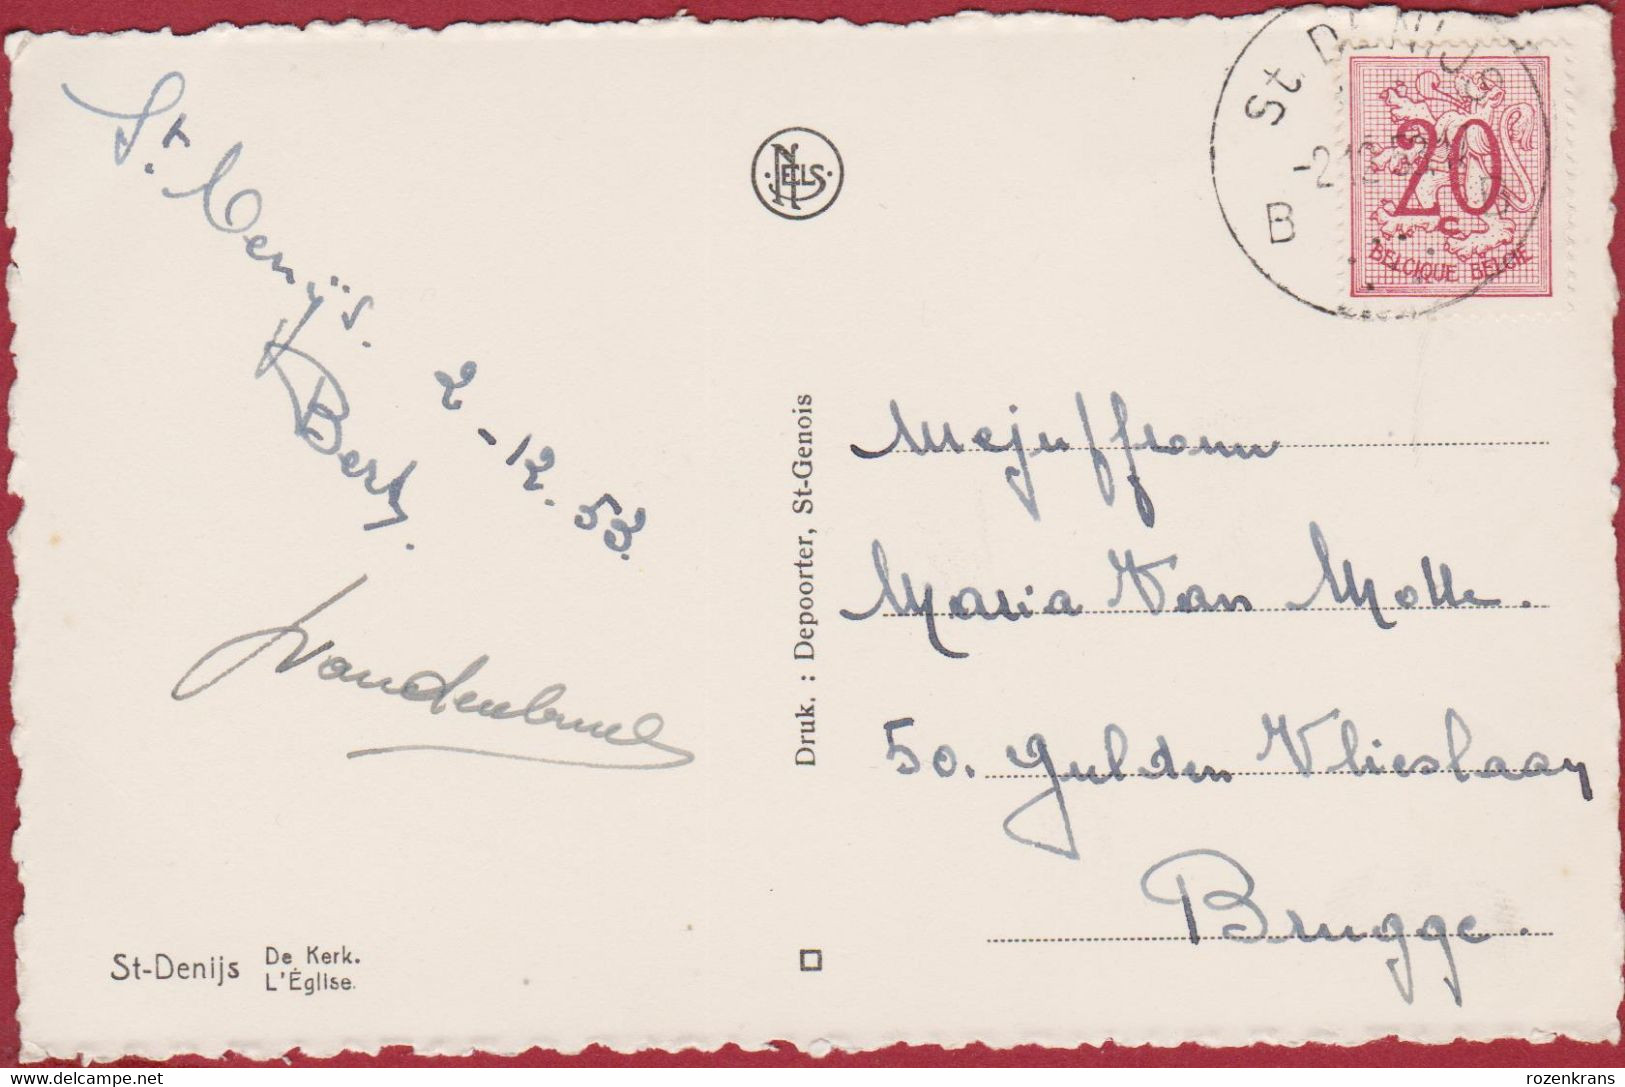 St. Denijs.
Bert.
2-12.53.
NELS
Druk. : Depoorter, St-Genois
St DENIJS
-2 12 53
B
20
c
BELGIQUE BELGIE
Mejuffrouw
Maria Van Molle.
50. Gulden Vlieslaan
Brugge.
St-Denijs De Kerk.
L'Église.
rozenkrans
delcampe.net